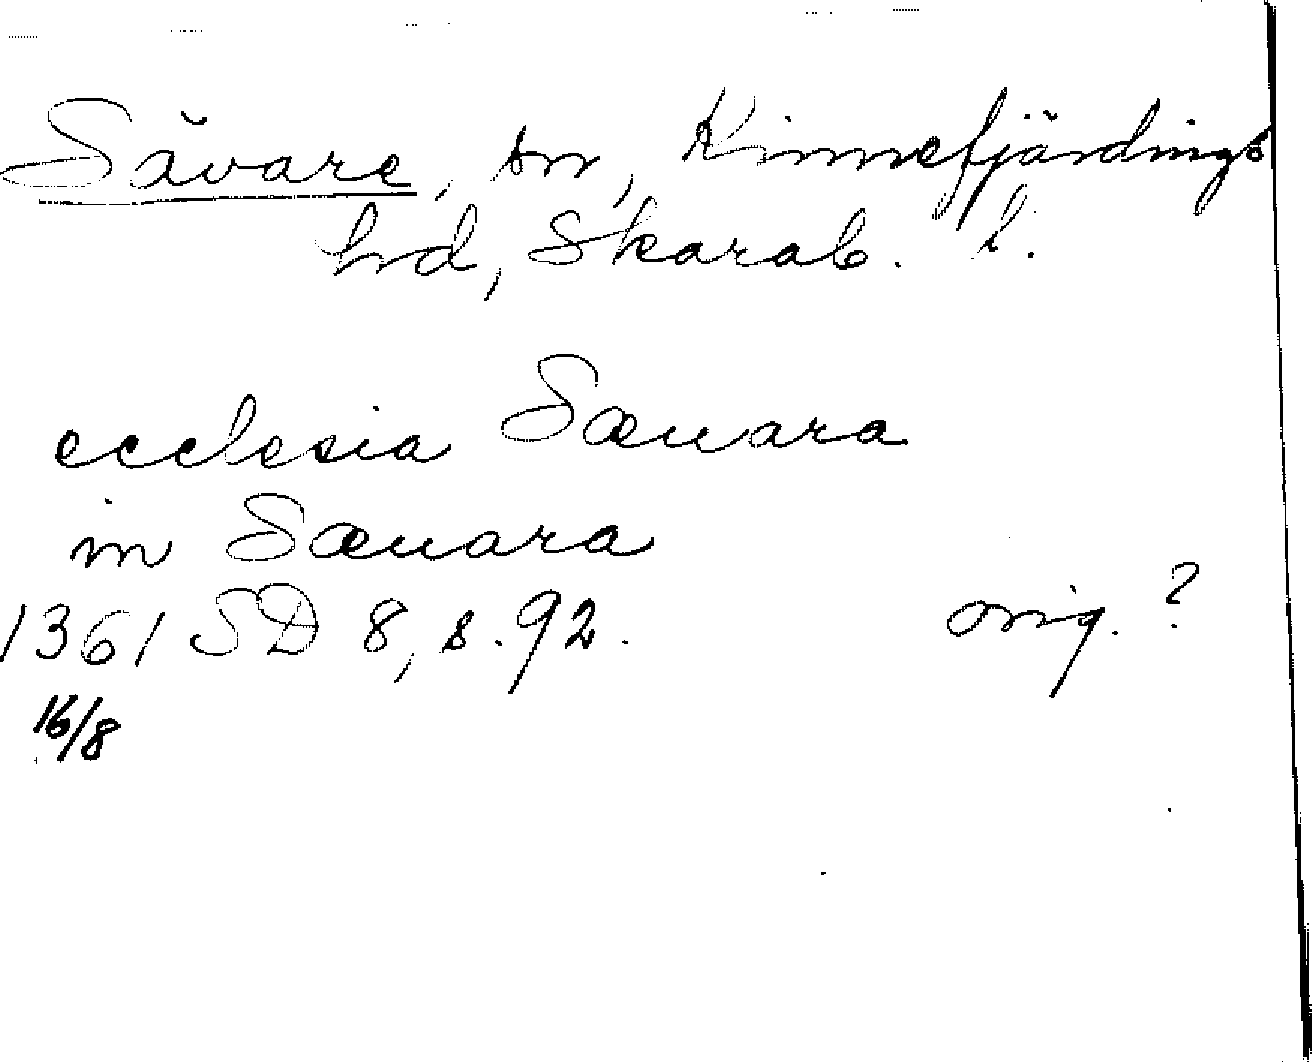 Sävare, sn, Kinnefjärdings
hd, Skarab. l.
ecclesia Sæuara
in Sæuara
1361 SD 8, s. 92. orig. ?
16/8